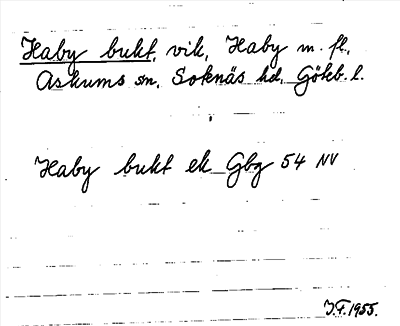 Haby bukt, vik, Haby m. fl.,
Askums sn, Sotenäs hd, Göteb. l.
Haby bukt ek Gbg 54 NV
J.F. 1955.